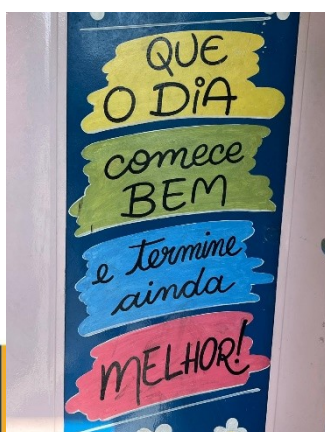 QUE
O DiA
comece
BEM
e termine
ainda
MELHOR!